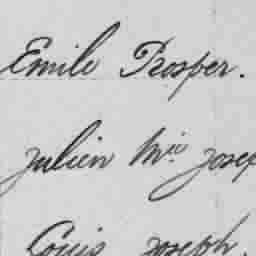 Emile Prosper.
Julien Mie Josep
Louis Joseph.